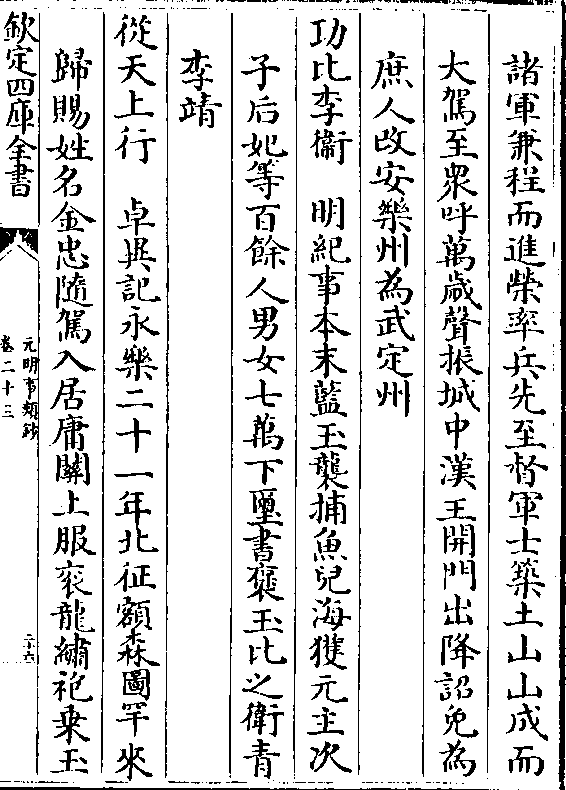 諸軍兼程而進榮率兵先至督軍士築土山山成而
大駕至衆呼萬歲聲振城中漢王開門出降詔免為
庶人改安樂州為武定州
功比李衛　明紀事本末藍玉襲捕魚兒海獲元主次
子后妃等百餘人男女七萬下璽書褒玉比之衛青
李靖
從天上行　卓異記永樂二十一年北征額森圖罕來
歸賜姓名金忠隨駕入居庸關上服衮龍繡袍乗玉
欽定四庫全書
元明事類鈔
卷二十三
二十六